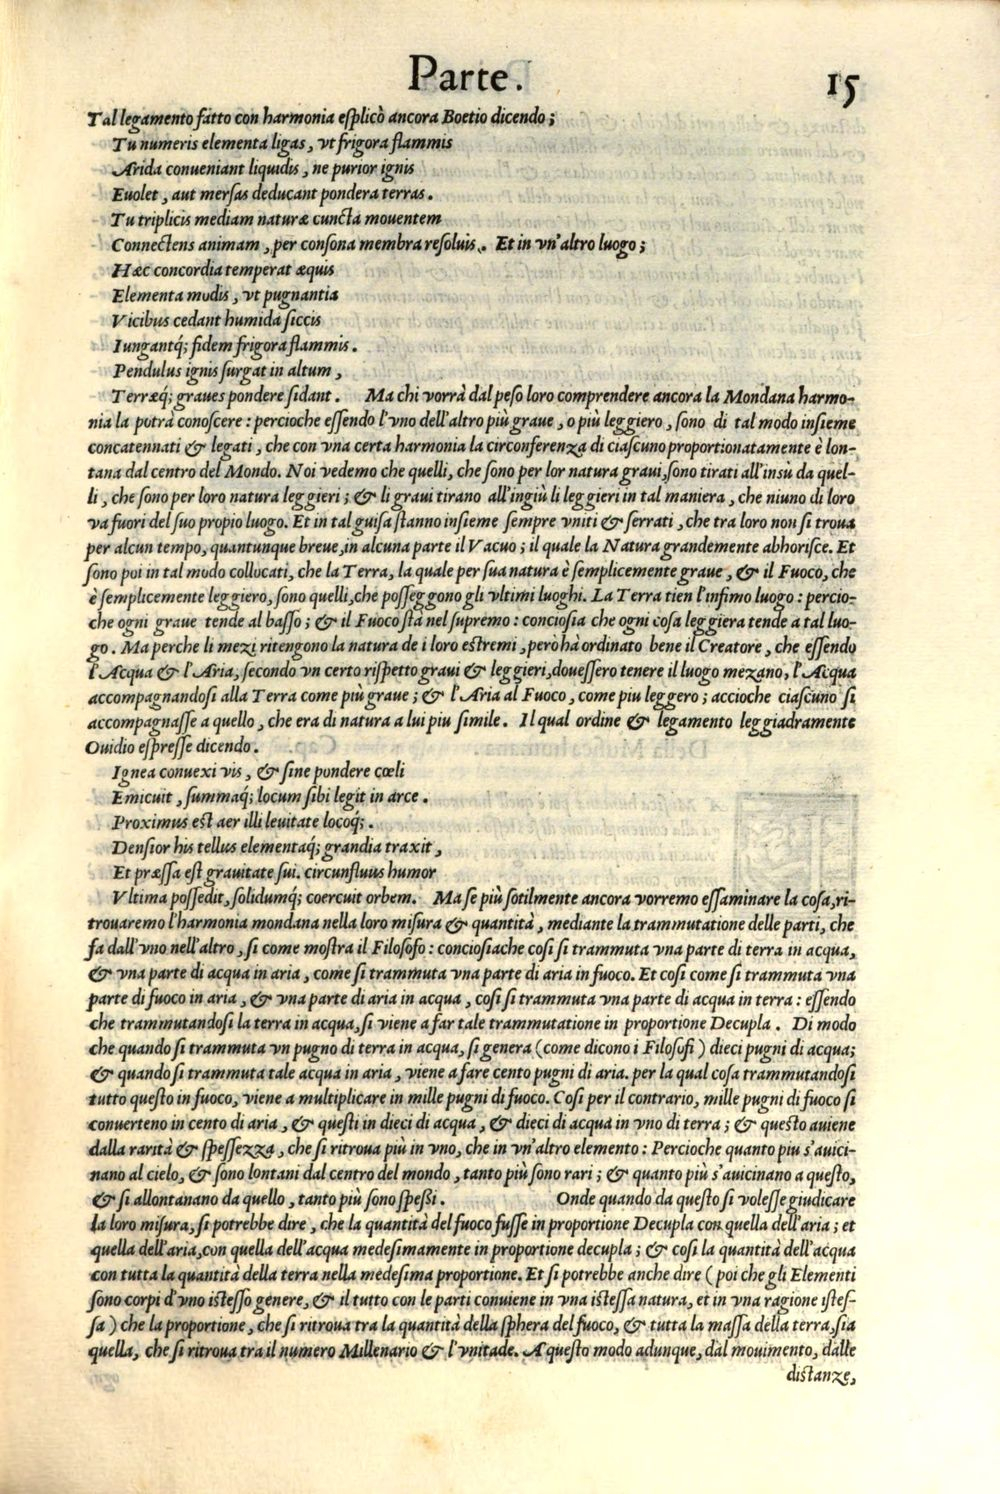 Parte. 15
Tal legamento fatto con harmonia esplicò ancora Boetio dicendo;
Tu numeris elementa ligas, vt frigora flammis
Arida conueniant liquidis, ne purior ignis
Euolet, aut mersas deducant pondera terras.
Tu triplicis mediam naturæ cuncta mouentem
Connectens animam, per consona membra resoluis. Et in vn'altro luogo;
Hæc concordia temperat æquis
Elementa modis, vt pugnantia
Vicibus cedant humida siccis
Iungantq́; fidem frigora flammis.
Pendulus ignis surgat in altum,
Terræq́; graues pondere sidant. Ma chi vorrà dal peso loro comprendere ancora la Mondana harmo-
nia la potrà conoscere: percioche essendo l'vno dell'altro più graue, o più leggiero, sono di tal modo insieme
concatennati & legati, che con vna certa harmonia la circonferenza di ciascuno proportionatamente è lon-
tana dal centro del Mondo. Noi vedemo che quelli, che sono per lor natura graui, sono tirati all'insù da quel-
li, che sono per loro natura leggieri; & li graui tirano all'ingiù li leggieri in tal maniera, che niuno di loro
va fuori del suo propio luogo. Et in tal guisa stanno insieme sempre vniti & serrati, che tra loro non si troua
per alcun tempo, quantunque breue, in alcuna parte il Vacuo; il quale la Natura grandemente abhorisce. Et
sono poi in tal modo collocati, che la Terra, la quale per sua natura è semplicemente graue, & il Fuoco, che
è semplicemente leggiero, sono quelli, che posseggono gli vltimi luoghi. La Terra tien l'infimo luogo: percio-
che ogni graue tende al basso; & il Fuoco stà nel supremo: conciosia che ogni cosa leggiera tende a tal luo-
go. Ma perche li mezi ritengono la natura de i loro estremi, però hà ordinato bene il Creatore, che essendo
l'Acqua & l'Aria, secondo vn certo rispetto graui & leggieri, douessero tenere il luogo mezano, l'Acqua
accompagnandosi alla Terra come più graue; & l'Aria al Fuoco, come piu leggero; accioche ciascuno si
accompagnasse a quello, che era di natura a lui piu simile. Il qual ordine & legamento leggiadramente
Ouidio espresse dicendo.
Ignea conuexi vis, & sine pondere cœli
Emicuit, summaq́; locum sibi legit in arce.
Proximus est aer illi leuitate locoq́;.
Densior his tellus elementaq́; grandia traxit,
Et præssa est grauitate sui. circunfluus humor
Vltima possedit, solidumq́; coercuit orbem. Ma se più sotilmente ancora vorremo essaminare la cosa, ri-
trouaremo l'harmonia mondana nella loro misura & quantità, mediante la trammutatione delle parti, che
fa dall'vno nell'altro, si come mostra il Filosofo: conciosiache cosi si trammuta vna parte di terra in acqua,
& vna parte di acqua in aria, come si trammuta vna parte di aria in fuoco. Et cosi come si trammuta vna
parte di fuoco in aria, & vna parte di aria in acqua, cosi si trammuta vna parte di acqua in terra: essendo
che trammutandosi la terra in acqua, si viene a far tale trammutatione in proportione Decupla. Di modo
che quando si trammuta vn pugno di terra in acqua, si genera (come dicono i Filosofi) dieci pugni di acqua;
& quando si trammuta tale acqua in aria, viene a fare cento pugni di aria. per la qual cosa trammutandosi
tutto questo in fuoco, viene a multiplicare in mille pugni di fuoco. Cosi per il contrario, mille pugni di fuoco si
conuerteno in cento di aria, & questi in dieci di acqua, & dieci di acqua in vno di terra; & questo auiene
dalla rarità & spessezza, che si ritroua più in vno, che in vn'altro elemento: Percioche quanto piu s'auici-
nano al cielo, & sono lontani dal centro del mondo, tanto più sono rari; & quanto più s'auicinano a questo,
& si allontanano da quello, tanto più sono spessi. Onde quando da questo si volesse giudicare
la loro misura, si potrebbe dire, che la quantità del fuoco fusse in proportione Decupla con quella dell'aria; et
quella dell'aria, con quella dell'acqua medesimamente in proportione decupla; & cosi la quantità dell'acqua
con tutta la quantità della terra nella medesima proportione. Et si potrebbe anche dire (poi che gli Elementi
sono corpi d'vno istesso genere, & il tutto con le parti conuiene in vna istessa natura, et in vna ragione istes-
sa) che la proportione, che si ritroua tra la quantità della sphera del fuoco, & tutta la massa della terra, sia
quella, che si ritroua tra il numero Millenario & l'vnitade. A questo modo adunque, dal mouimento, dalle
distanze,